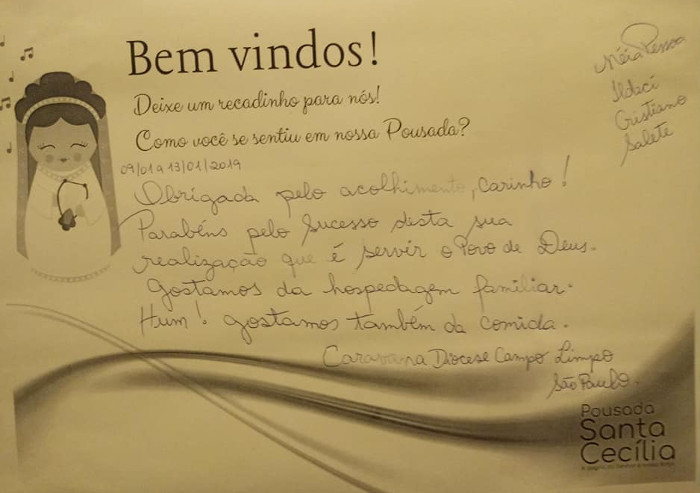 Bem vindos!
Deixe um recadinho para nós!
Como você se sentiu em nossa Pousada?
09/01 a 13/01/2019
Obrigada pelo acolhimento, Carinho!
Parabéns pelo Sucesso desta sua
realização que é servir o Povo de Deus.
Gostamos da hospedagem familiar.
Hum! gostamos também da comida.
Caravana Diocese Campo Limpo
São Paulo.
Néia Pessoa
Ildaci
Cristiano
Salete
Pousada
Santa
Cecília